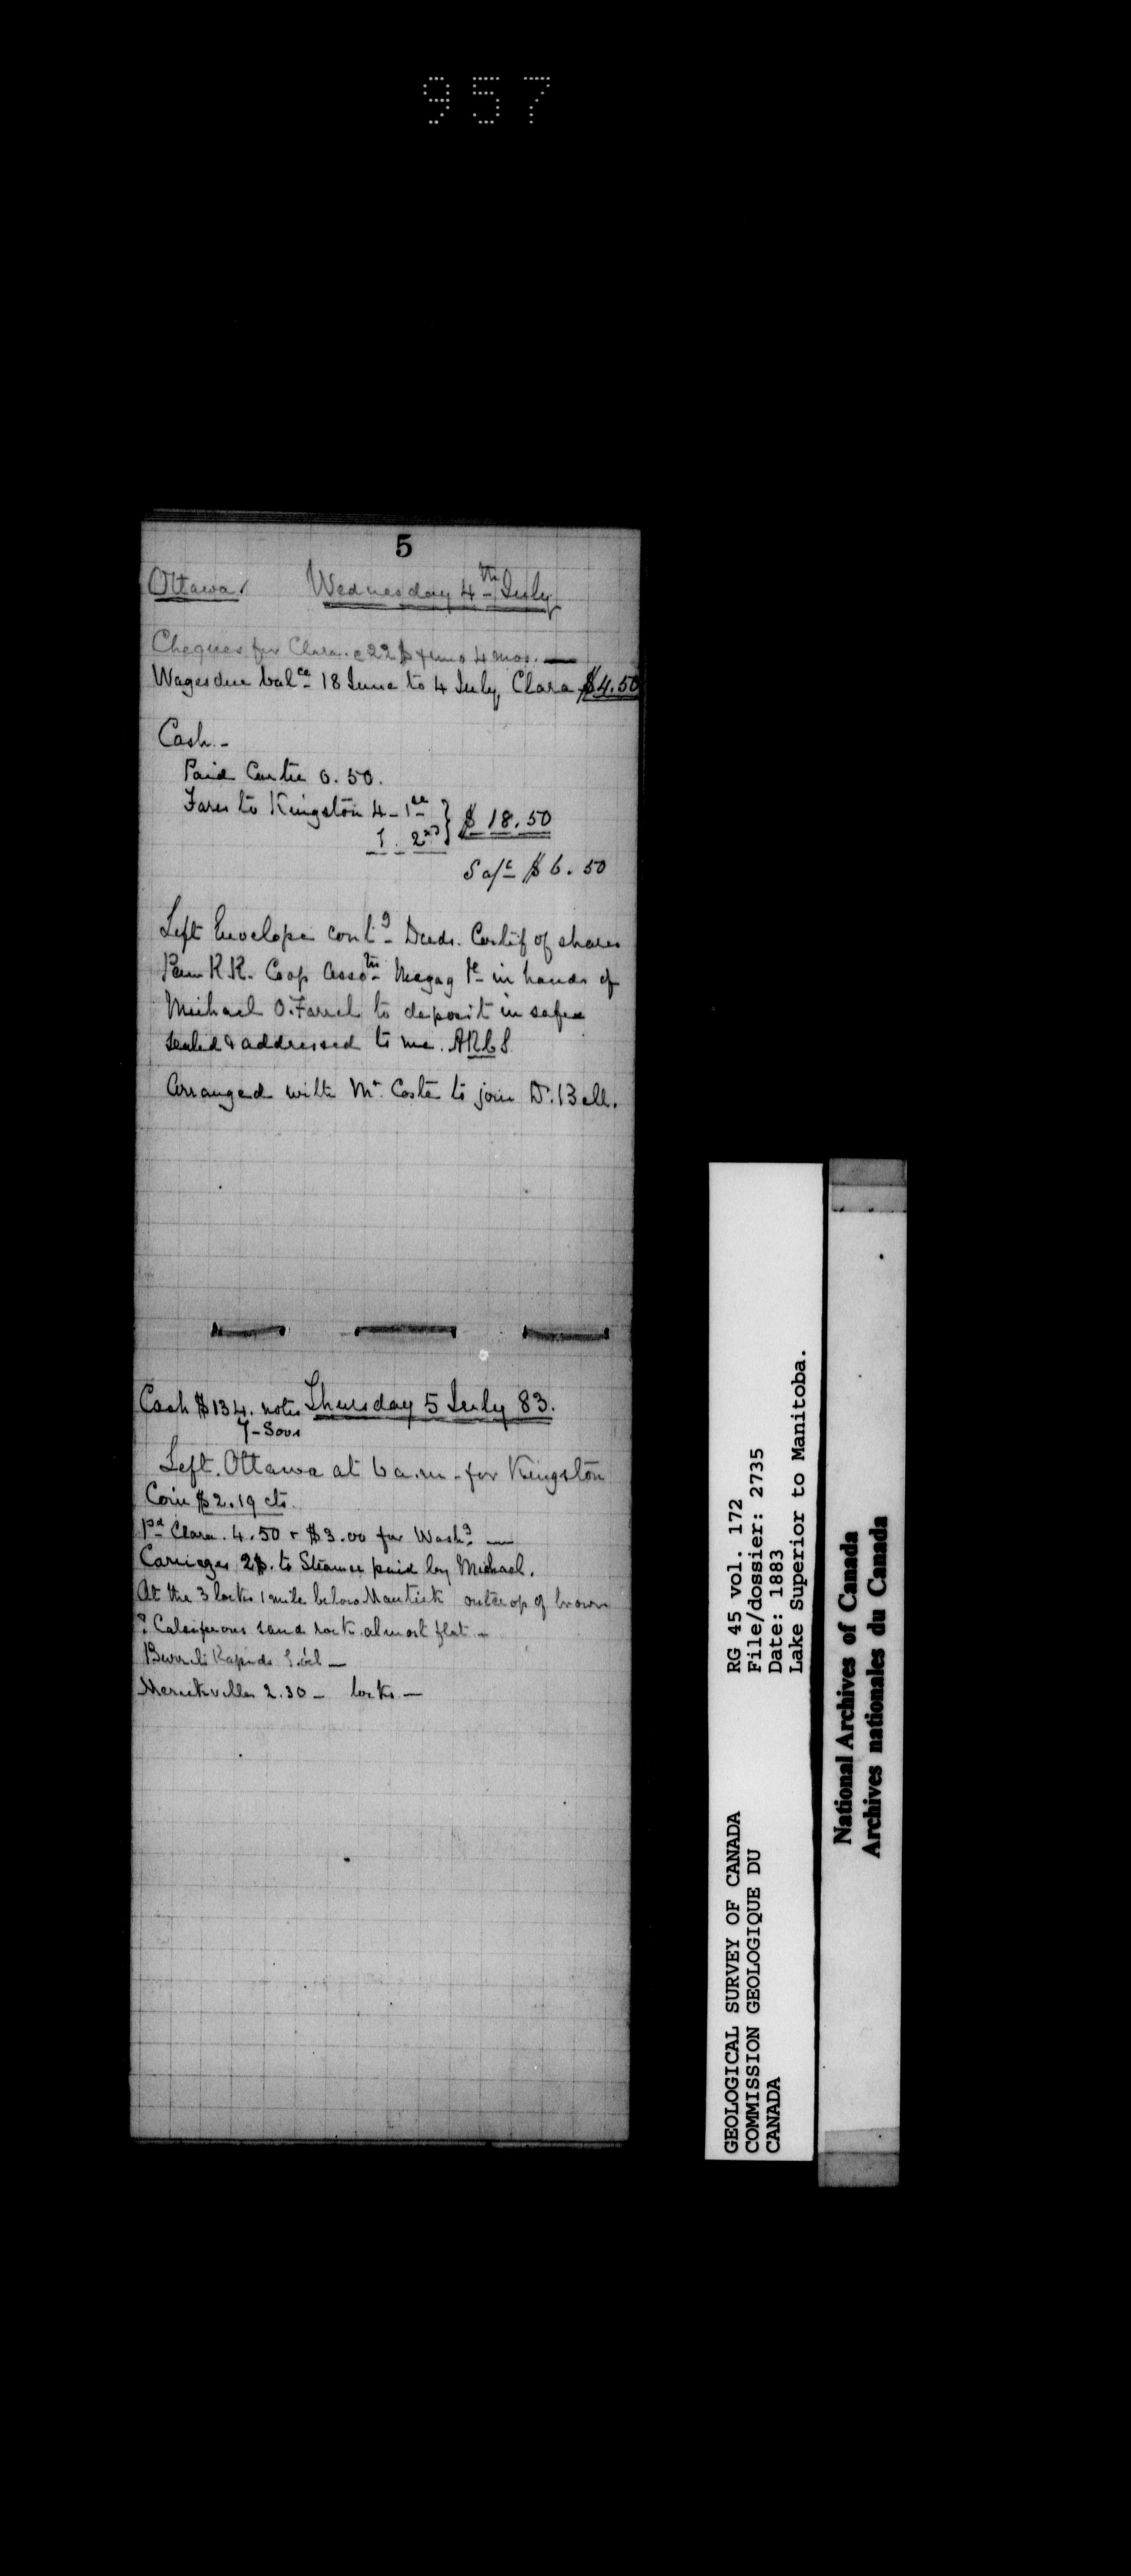 957
5
Ottawa. Wednesday 4th July
Cheques for Clara. 22$ 4 mos. —
Wages due balce 18 June to 4 July, Clara $4.50
Cash.-
Paid 0.50.
Fares to Kingston 4-1st } $18.50
1. 2nd
$6.50
Left Envelope contg Deeds. Certif of shares
R.R. Coop Assotn in hands of
Michael O.Farrel to deposit in safe
sealed & addressed to me. ARCS
Arranged with Mr. Coste to join Dr. Bell.
Cash $134. notes Thursday 5 July 83.
7-Sovs
Left. Ottawa at 6 a.m. for Kingston
Coin $2.19 cts.
Pd Clara. 4.50 + $3.00 for Washg —
Carriages 2$. to Steamer paid by Michael.
At the 3 locks 1 mile below Mantick outcrop of brown
? Calciferous sand rock almost flat —
Burrils Rapids —
Merickville 2.30 — locks —
GEOLOGICAL SURVEY OF CANADA
COMMISSION GEOLOGIQUE DU
CANADA
RG 45 vol. 172
File/dossier: 2735
Date: 1883
Lake Superior to Manitoba.
National Archives of Canada
Archives nationales du Canada